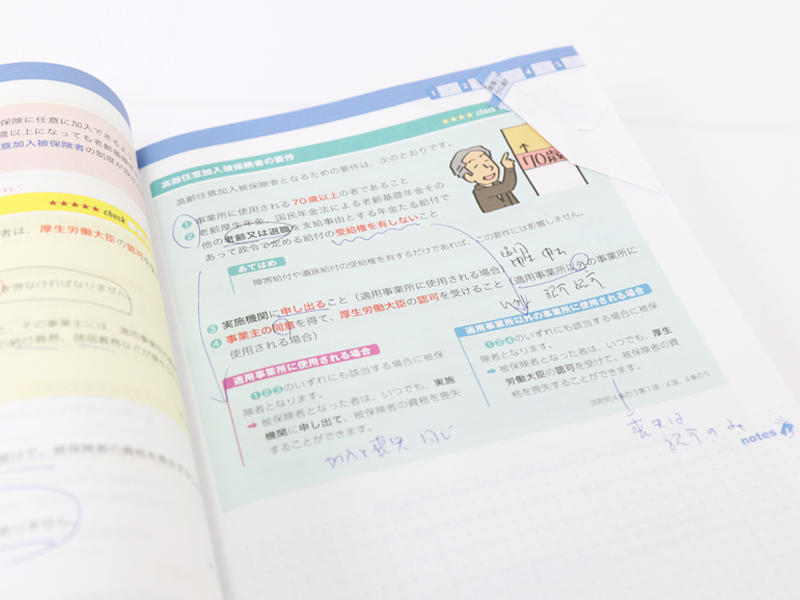 保険に任意に加入できるよう
歳以上になっても老齢基礎年
意加入被保険者の制度が設け
★★★★★ check
者は、厚生労働大臣の認可を
を得なければなりません
た、その事業主には、適用事業
の納付義務、
受けて、被保険者の資格を喪失
ありません。
1 2 4 5
★★★★ check
高齢任意加入被保険者の要件
高齢任意加入被保険者となるための要件は、次のとおりです。
① 事業所に使用される70歳以上の者であること
② 老齢厚生年金、国民年金法による老齢基礎年金その
他の老齢又は退職を支給事由とする年金たる給付で
あって政令で定める給付の受給権を有しないこと
70歳
あてはめ
障害給付や遺族給付の受給権を有するだけであれば、この要件には影響しません。
③ 実施機関に申し出ること（適用事業所に使用される場合）
④ 事業主の同意を得て、厚生労働大臣の認可を受けること（適用事業所以外の事業所に
使用される場合）
適用 申出
以外 認可
適用事業所に使用される場合
①②③のいずれにも該当する場合に被保
険者となります。
➡ 被保険者となった者は、いつでも、実施
機関に申し出て、被保険者の資格を喪失
することができます。
加入と喪失 同じ
適用事業所以外の事業所に使用される場合
①②④のいずれにも該当する場合に被保
険者となります。
➡ 被保険者となった者は、いつでも、厚生
労働大臣の認可を受けて、被保険者の資
格を喪失することができます。
法附則4条の3第1項・4項、4条の5
喪失は
認可のみ
notes